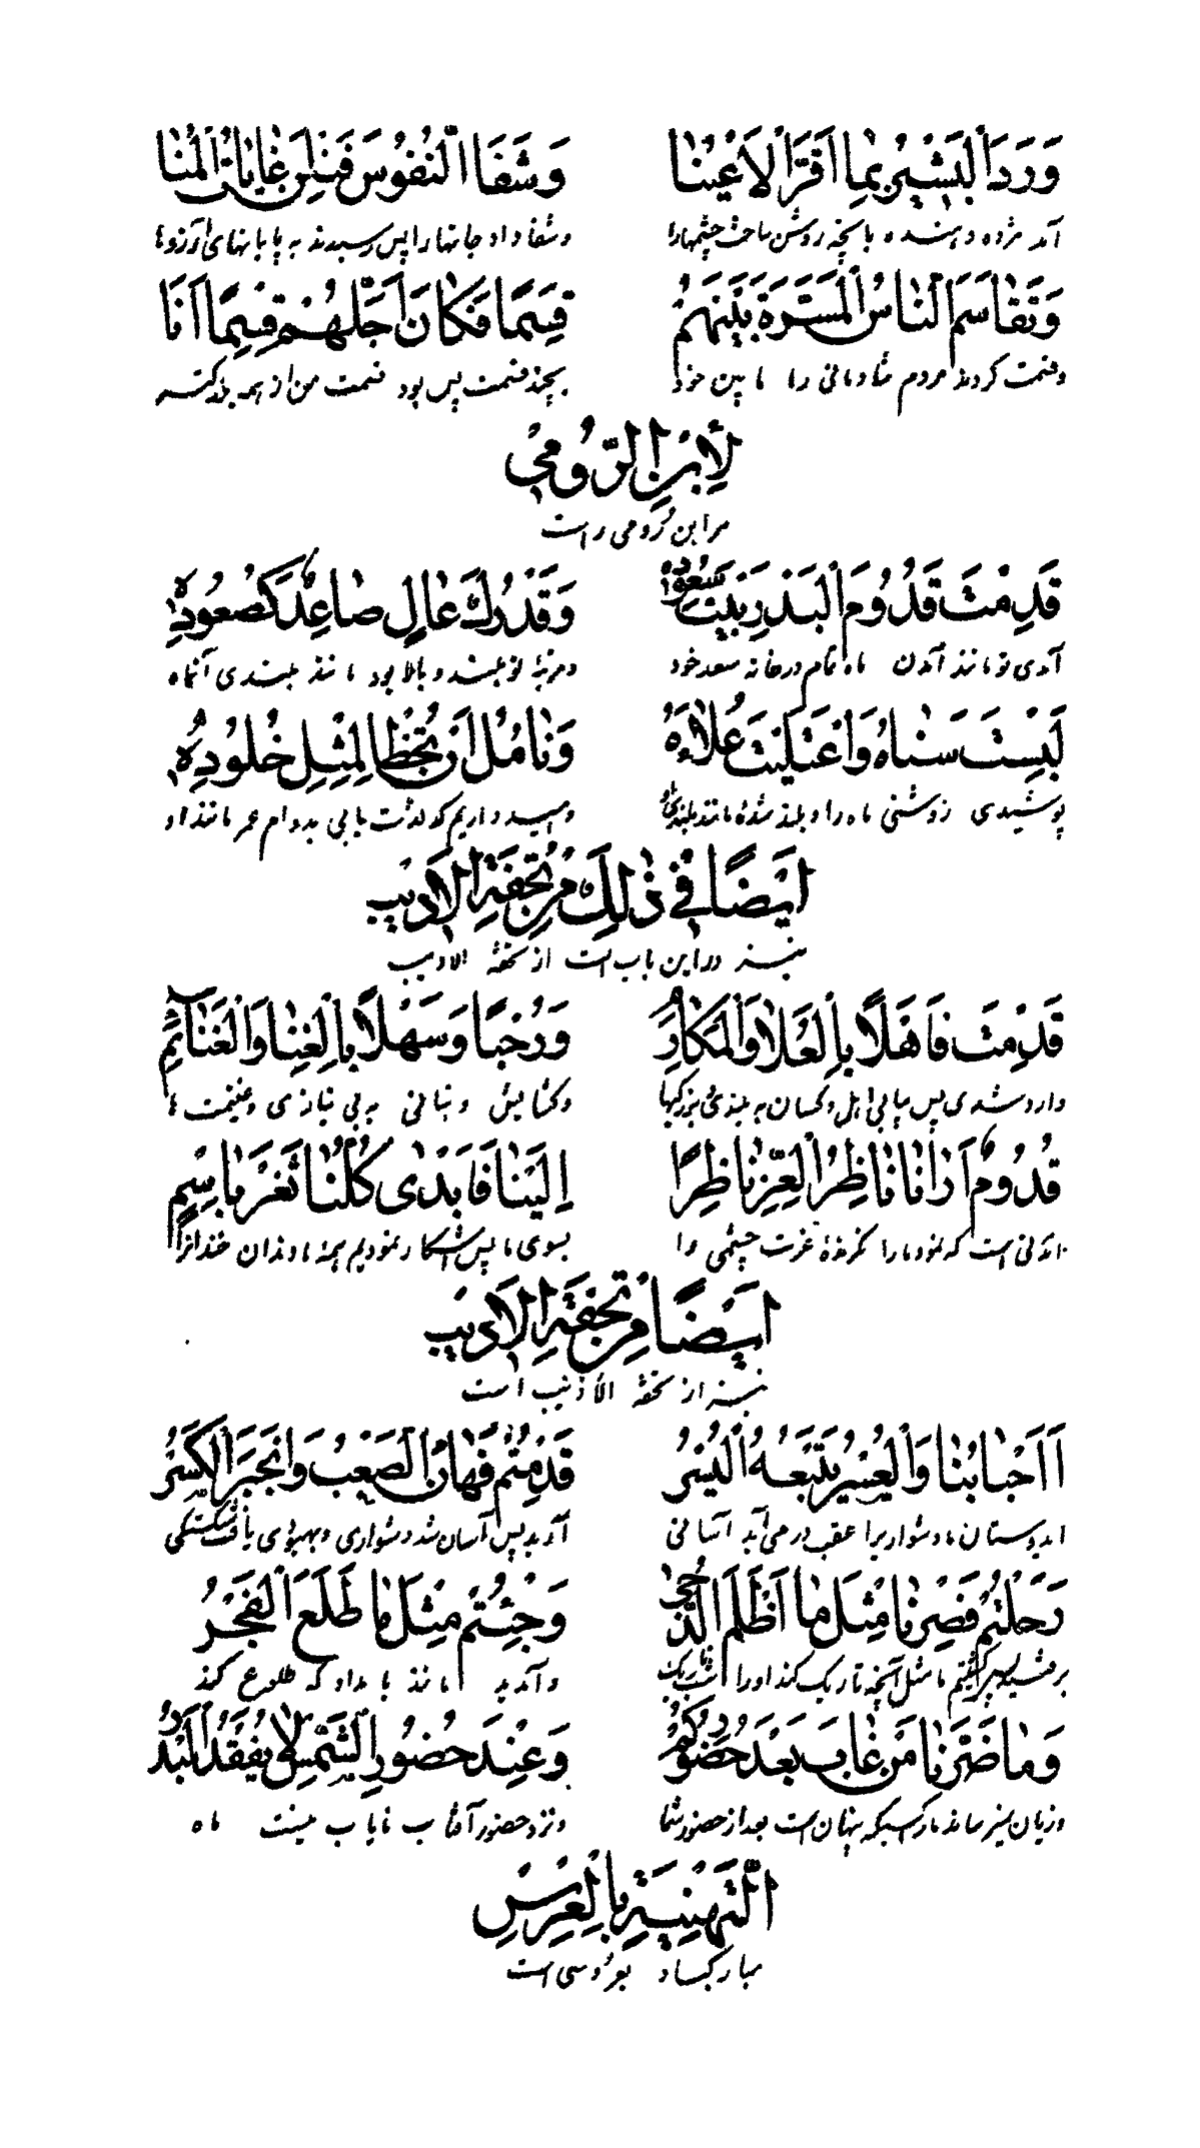 وَرَدَ الْبَشِيْرُ بِمَا اَقَرَّ الْاَعْيُنَا وَشَفَا النُّفُوْسَ فَنِلْنَ غَايَاتِ الْمُنَا
آمد مژده دهنده بانچه روشن ساخت چشمهارا وشفا داد جانها را پس رسیدند به پایانهای آرزوها
وَتَقَاسَمَ النَّاسُ الْمَسَرَّةَ بَيْنَهُمْ قِسَمًا فَكَانَ اَجَلَّهُمْ قِسَمًا اَنَا
وقسمت کردند مردم شادمانی را مابین خود بچند قسمت پس بود قسمت من از همه بلندکتر
لِابْنِ الرُّوْمِيْ
مر ابن رومی راست
قَدِمْتَ قُدُوْمَ الْبَدْرِ بَيْتَ سُعُوْدِهٖ وَقَدْرُكَ عَالٍ صَاعِدٌ كَصُعُوْدِهٖ
آمدی تو مانند آمدن ماه تمام در خانه سعد خود ومرتبهٔ تو بلند و بالا بود مانند بلندی آنماه
لَبِسْتَ سَنَاهُ وَاعْتَلَيْتَ عُلَاءَهُ وَنَامُلُ اَنْ تُحْظَا بِمِثْلِ خُلُوْدِهٖ
پوشیدی روشنی ماه را و بلند شدهٔ مانند بلندی او وامید داریم که لذت یابی بدوام عمر مانند او
اَيْضًا فِيْ ذٰلِكَ مِنْ تُحْفَةِ الْاَدِيْبِ
نیز در این باب است از تحفة الادیب
قَدِمْتَ فَاَهْلًا بِالْعُلَا وَالْمَكَارِمِ وَرُحْبًا وَسَهْلًا بِالْغِنَا وَالْغَنَائِمِ
وارد شدی پس بیابی اهل وکسان به بلندی بزرگیها وگشایش وآسانی به بی نیازی وغنیمت ها
قُدُوْمٌ اَرَانَا نَاظِرُ الْعِزِّ نَاظِرًا اِلَيْنَا فَاَبْدٰى كُلُّنَا ثَغْرَ بَاسِمٍ
آمدنی است که نمود مارا نگرندهٔ عزت چشمی را بسوی ما پس آشکار نمودیم همهٔ ما دندان خندانرا
اَيْضًا مِنْ تُحْفَةِ الْاَدِيْبِ
نیز از تحفة الأدیب است
اَاَحْبَابُنَا وَالْعُسْرُ يَتْبَعُهُ الْيُسْرُ قَدِمْتُمْ فَهَانَ الصَّعْبُ وَانْجَبَرَ الْكَسْرُ
ایدوستان ما ودشواریرا عقب در می آید آسانی آمدید پس آسان شد دشواری وبهبودی یافت شکستگی
رَحَلْتُمْ فَصِرْنَا مِثْلَ مَا اَظْلَمَ الدُّجٰى وَجِئْتُمْ مِثْلَ مَا طَلَعَ الْفَجْرُ
پس گشتیم ما مثل آنچه تاریک کند اورا شب تاریک وآمدید مانند بامداد که طلوع کند
وَمَا ضَرَّنَا مَنْ غَابَ بَعْدَ حُضُوْرِكُمْ وَعِنْدَ حُضُوْرِ الشَّمْسِ لَا يُفْقَدُ الْبَدْرُ
وزیان نمیرساند مارا کسیکه پنهان است بعد از حضور شما ونزد حضور آفتاب نایاب نیست ماه
اَلتَّهْنِيَةُ بِالْعِرْسِ
مبارکباد بعروسی است